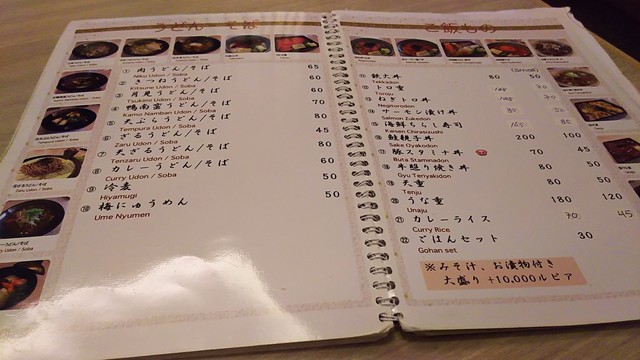 うどん・そば
① 肉うどん/そば 65
Niku Udon / Soba
② きつねうどん/そば 60
Kitsune Udon / Soba
③ 月見うどん/そば 60
Tsukimi Udon / Soba
④ 鴨南蛮うどん/そば 70
Kamo Namban Udon / Soba
⑤ 天ぷらうどん/そば 80
Tempura Udon / Soba
⑥ ざるうどん/そば 45
Zaru Udon / Soba
⑦ 天ざるうどん/そば 80
Tenzaru Udon / Soba
⑧ カレーうどん/そば 60
Curry Udon / Soba
⑨ 冷麦 50
Hiyamugi
⑩ 梅にゅうめん 50
Ume Nyumen
ご飯もの
(Small)
⑪ 鉄火丼 80 50
Tekkadon
⑫ トロ重
Toroju
⑬ ねぎトロ丼
Negitorodon
⑭ サーモン漬け丼
Salmon Zukedon
⑮ 海鮮ちらし寿司
Kaisen Chirasizushi
⑯ 鮭親子丼 200 100
Sake Oyakodon
⑰ 豚スタミナ丼 70 45
Buta Staminadon
⑱ 牛照り焼き丼 80 50
Gyu Teriyakidon
⑲ 天重 80 50
Tenju
⑳ うな重 180 120
Unaju
㉑ カレーライス 70 45
Curry Rice
㉒ ごはんセット 30
Gohan set
※みそ汁、お漬物付き
大盛り +10,000ルピア